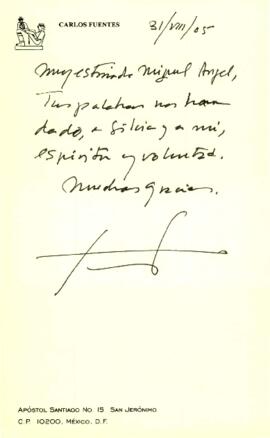 CARLOS FUENTES
31/VIII/05
Muy estimado Miguel Angel,
Tus palabras nos han
dado, a Silvia y a mí,
espíritu y voluntad.
Muchas gracias.
APÓSTOL SANTIAGO NO. 15 SAN JERÓNIMO
C.P. 10200, MÉXICO, D.F.